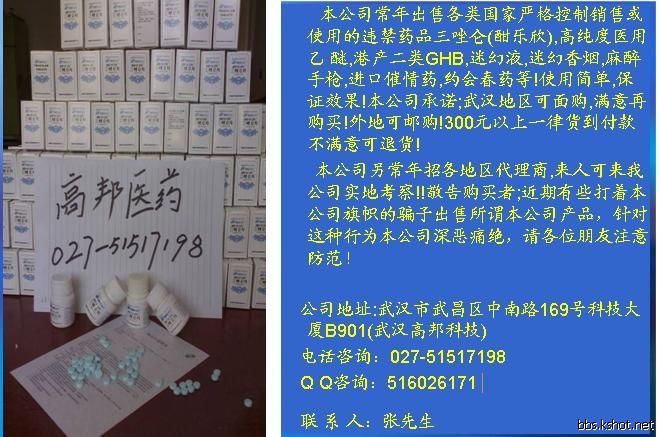 高邦医药
027-51517198
本公司常年出售各类国家严格控制销售或
使用的违禁药品三唑仑(酣乐欣),高纯度医用
乙 醚,港产二类GHB,迷幻液,迷幻香烟,麻醉
手枪,进口催情药,约会春药等!使用简单,保
证效果!本公司承诺;武汉地区可面购,满意再
购买!外地可邮购!300元以上一律货到付款
不满意可退货!
本公司另常年招各地区代理商,来人可来我
公司实地考察!!敬告购买者;近期有些打着本
公司旗帜的骗子出售所谓本公司产品，针对
这种行为本公司深恶痛绝，请各位朋友注意
防范!
公司地址:武汉市武昌区中南路169号科技大
厦B901(武汉高邦科技)
电话咨询：027-51517198
Q Q咨询：516026171
联 系 人：张先生
bbs.kshot.net